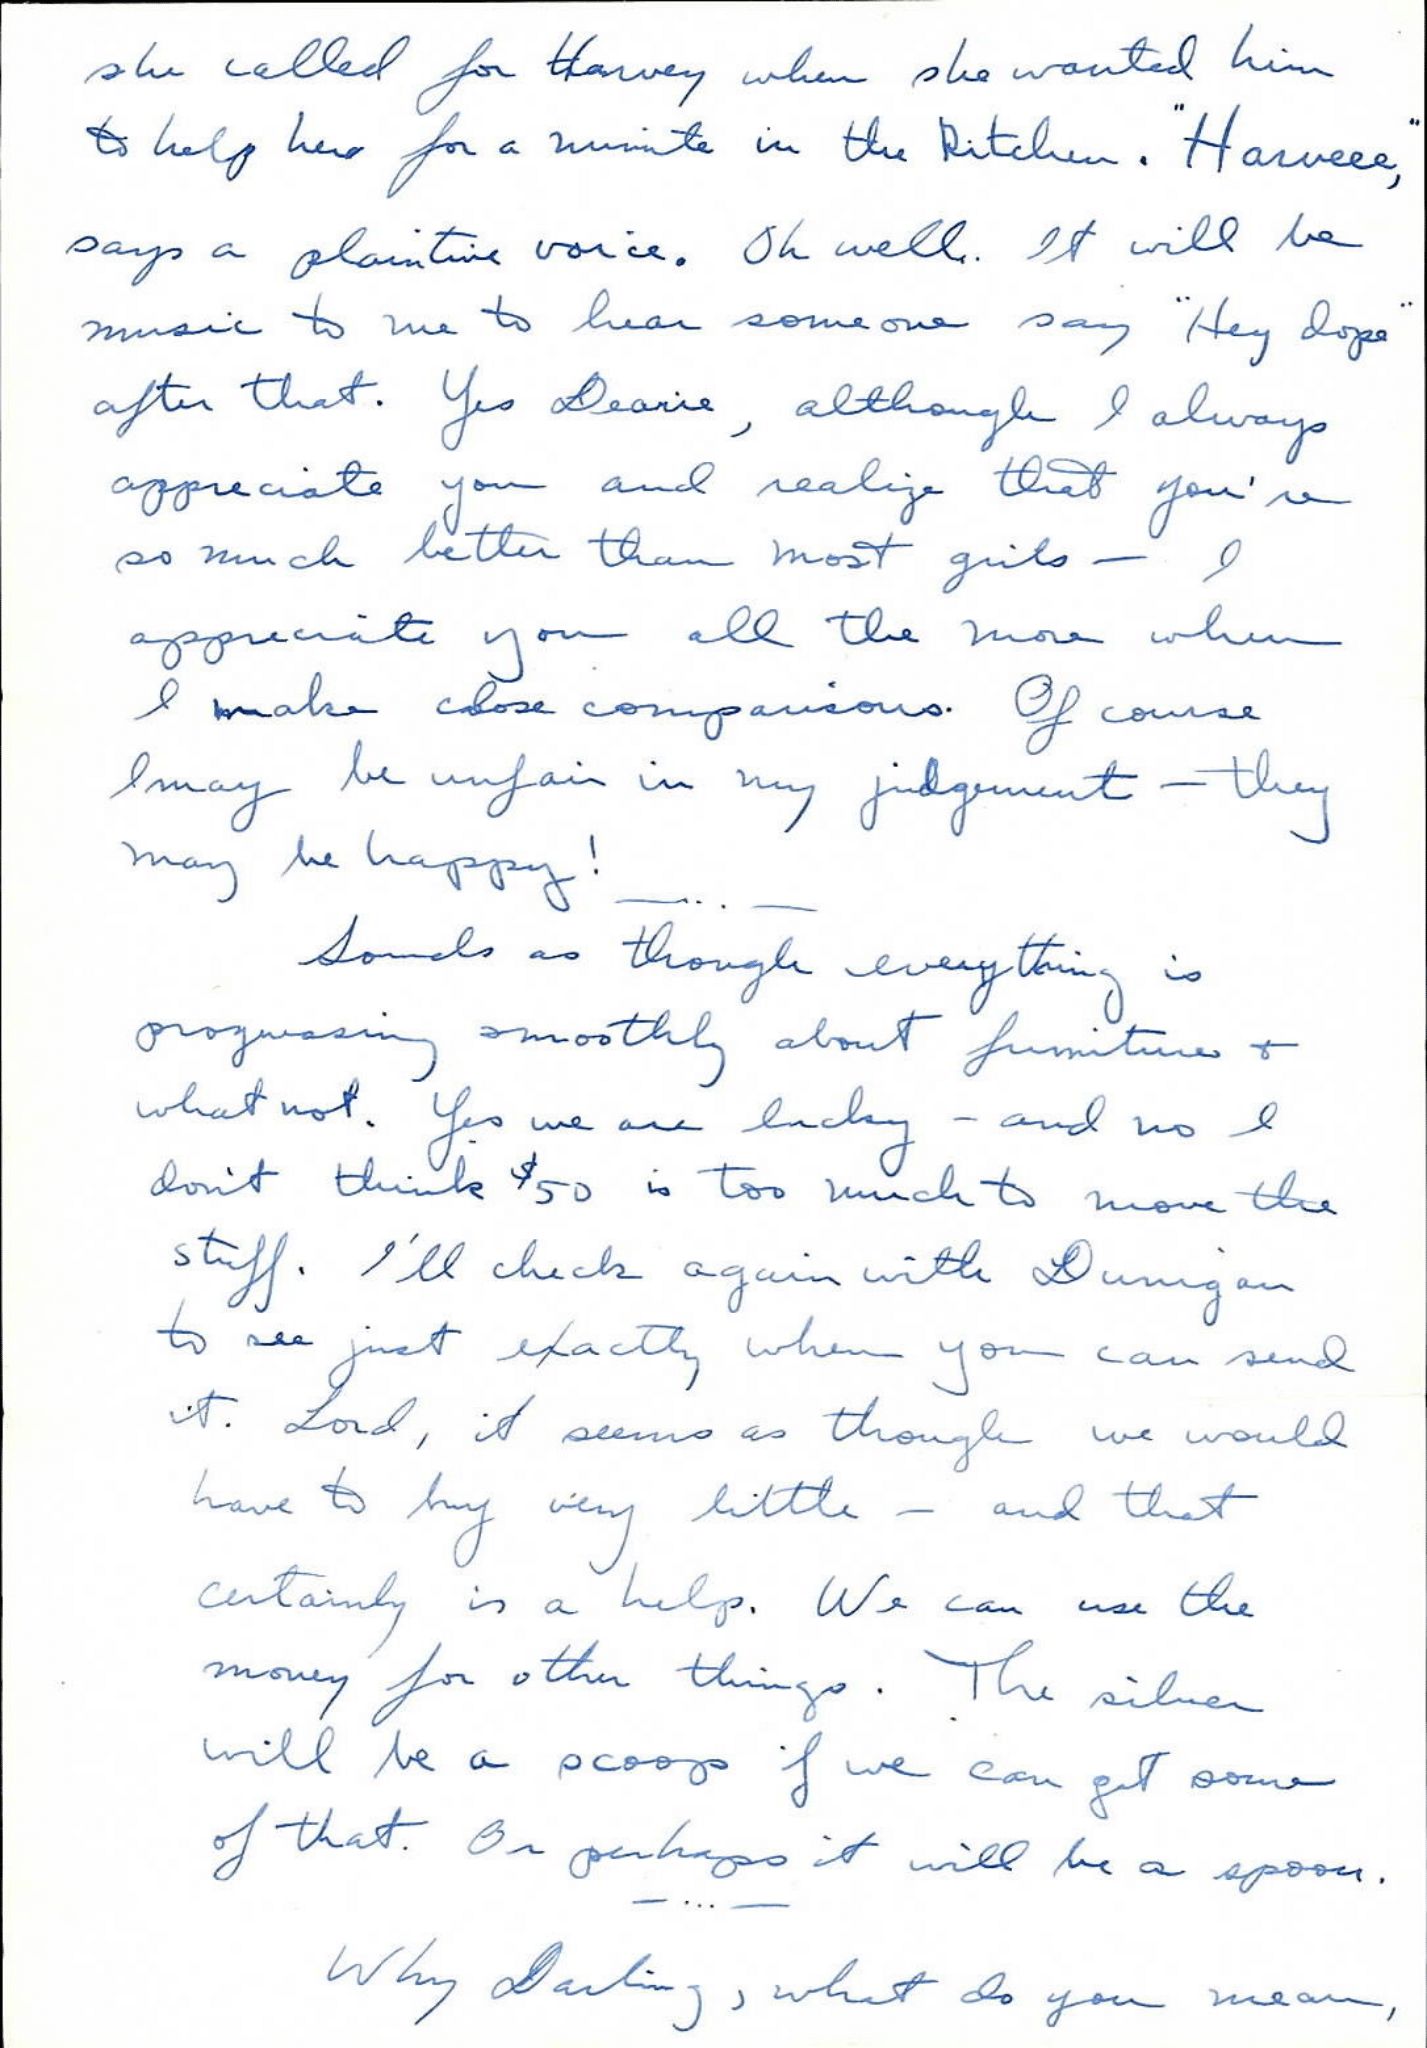 she called for Harvey when she wanted him
to help her for a minute in the kitchen. "Harveee,"
says a plaintive voice. Oh well. It will be
music to me to hear someone say "Hey dope"
after that. Yes Dearie, although I always
appreciate you and realize that you're
so much better than most girls – I
appreciate you all the more when
I make close comparisons. Of course
I may be unfair in my judgement – they
may be happy!
— ... —
Sounds as though everything is
progressing smoothly about furniture +
what not. Yes we are lucky – and no I
don't think $50 is too much to move the
stuff. I'll check again with Dunigan
to see just exactly when you can send
it. Lord, it seems as though we would
have to buy very little – and that
certainly is a help. We can use the
money for other things. The silver
will be a scoop if we can get some
of that. Or perhaps it will be a spoon.
— ... —
Why Darling, what do you mean,